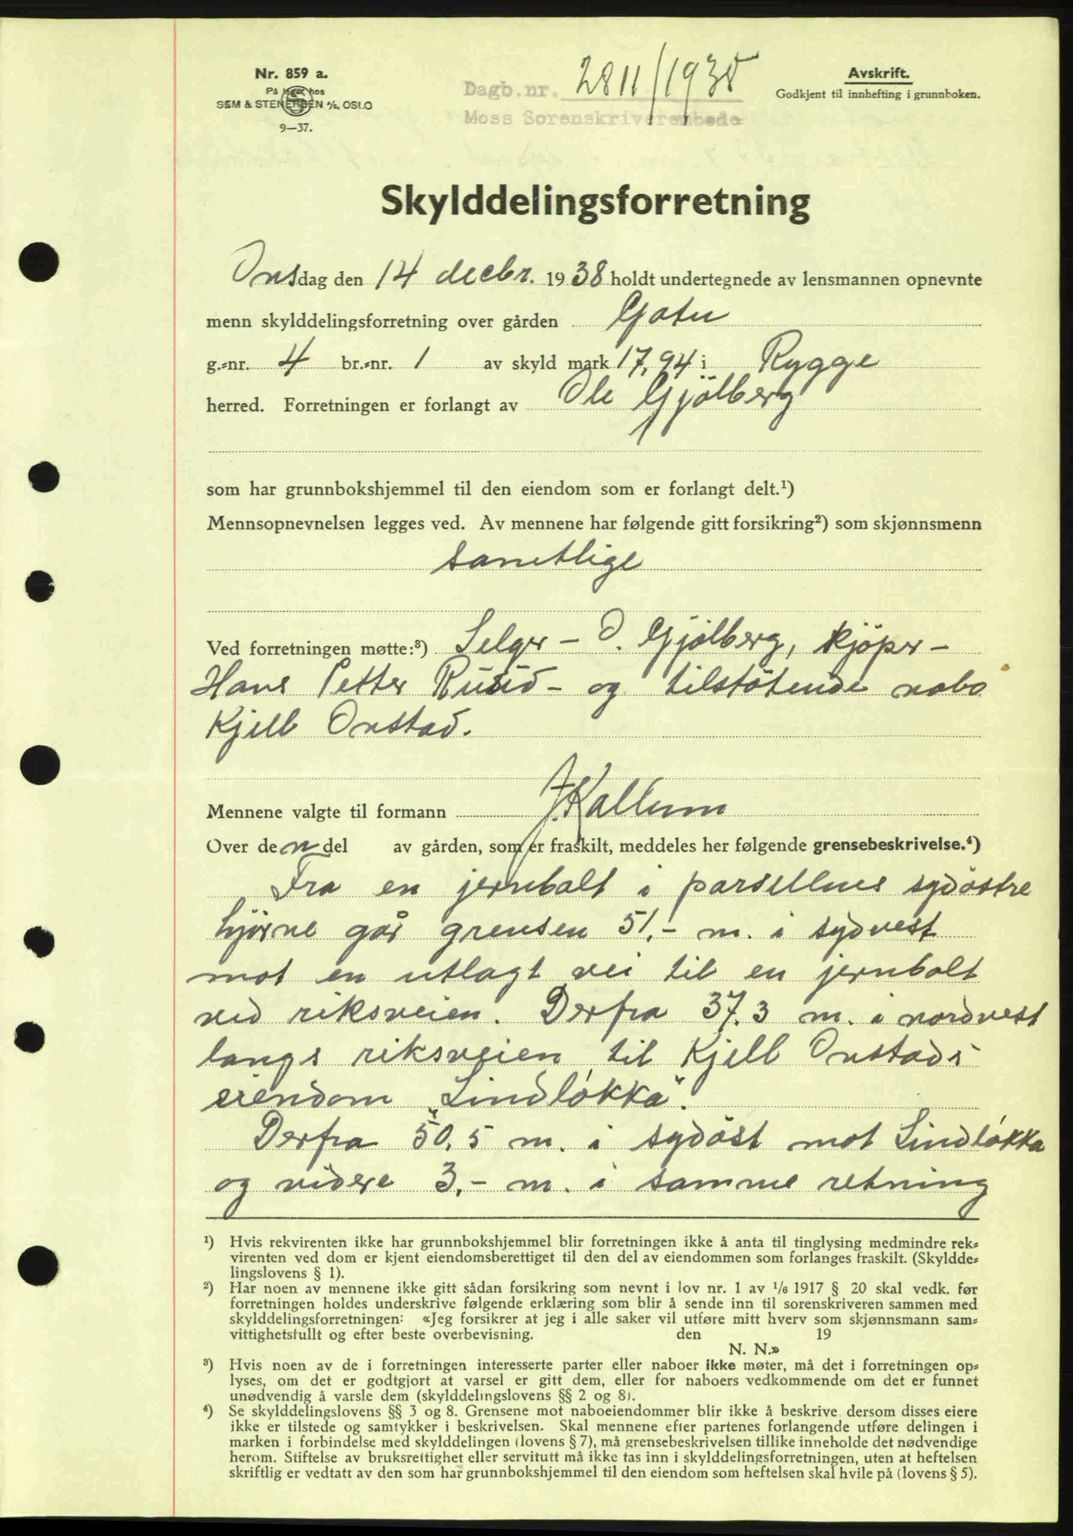 Nr. 859 a.
På lager hos
SEM & STENERSEN A/S, OSLO
9—37.
Dagb.nr. 2811/1938
Moss Sorenskriverembede
Avskrift.
Godkjent til innhefting i grunnboken.
Skylddelingsforretning
Onsdag den 14 decbr. 1938 holdt undertegnede av lensmannen opnevnte
menn skylddelingsforretning over gården Gatu
g.-nr. 4 br.-nr. 1 av skyld mark 17,94 i Rygge
herred. Forretningen er forlangt av Ole Gjølberg
som har grunnbokshjemmel til den eiendom som er forlangt delt.¹)
Mennsopnevnelsen legges ved. Av mennene har følgende gitt forsikring²) som skjønnsmenn
samtlige
Ved forretningen møtte:³) Selger - O. Gjølberg, kjöper -
Hans Petter Ruud - og tilstötende nabo
Kjell Onstad.
Mennene valgte til formann J. Kallum
Over den del av gården, som er fraskilt, meddeles her følgende grensebeskrivelse.⁴)
Fra en jernbolt i parsellens sydöstre
hjörne går grensen 51,- m. i sydvest
mot en utlagt vei til en jernbolt
ved riksveien. Derfra 37.3 m. i nordvest
langs riksveien til Kjell Onstads
eiendom „Lindløkka".
Derfra 50,5 m. i sydöst mot Lindløkka
og videre 3,- m. i samme retning
¹) Hvis rekvirenten ikke har grunnbokshjemmel blir forretningen ikke å anta til tinglysing medmindre rek-
virenten ved dom er kjent eiendomsberettiget til den del av eiendommen som forlanges fraskilt. (Skyldde-
lingslovens § 1).
²) Har noen av mennene ikke gitt sådan forsikring som nevnt i lov nr. 1 av 1/6 1917 § 20 skal vedk. før
forretningen holdes underskrive følgende erklæring som blir å sende inn til sorenskriveren sammen med
skylddelingsforretningen: «Jeg forsikrer at jeg i alle saker vil utføre mitt hverv som skjønnsmann sam-
vittighetsfullt og efter beste overbevisning. den 19
N. N.»
³) Hvis noen av de i forretningen interesserte parter eller naboer ikke møter, må det i forretningen op-
lyses, om det er godtgjort at varsel er gitt dem, eller for naboers vedkommende om det er funnet
unødvendig å varsle dem (skylddelingslovens §§ 2 og 8).
⁴) Se skylddelingslovens §§ 3 og 8. Grensene mot naboeiendommer blir ikke å beskrive, dersom disses eiere
ikke er tilstede og samtykker i beskrivelsen. Skal mennene efter partenes forlangende utføre delingen i
marken i forbindelse med skylddelingen (lovens § 7), må grensebeskrivelsen tillike inneholde det nødvendige
herom. Stiftelse av bruksrettighet eller servitutt må ikke tas inn i skylddelingsforretningen, uten at heftelsen
skriftlig er vedtatt av den som har grunnbokshjemmel til den eiendom som heftelsen skal hvile på (lovens § 5).